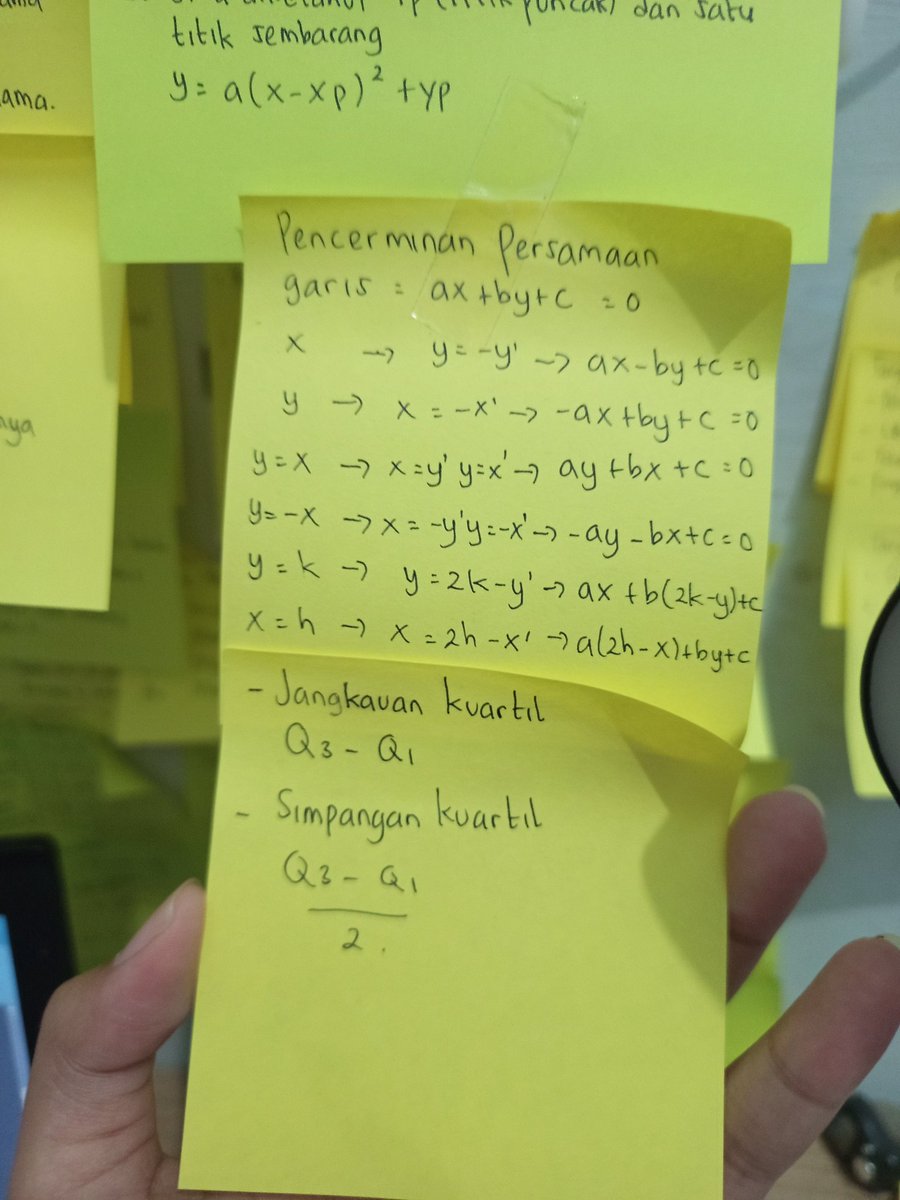 ama
ama.
nya
dan satu
titik sembarang
y = a(x-xp)² + yp
Pencerminan Persamaan
garis = ax+by+c = 0
x → y = -y' → ax-by+c=0
y → x = -x' → -ax+by+c=0
y=x → x=y' y=x' → ay+bx+c=0
y=-x → x=-y' y=-x' → -ay-bx+c=0
y=k → y=2k-y' → ax+b(2k-y)+c
x=h → x=2h-x' → a(2h-x)+by+c
- Jangkauan kuartil
Q3 - Q1
- Simpangan kuartil
Q3 - Q1
2.